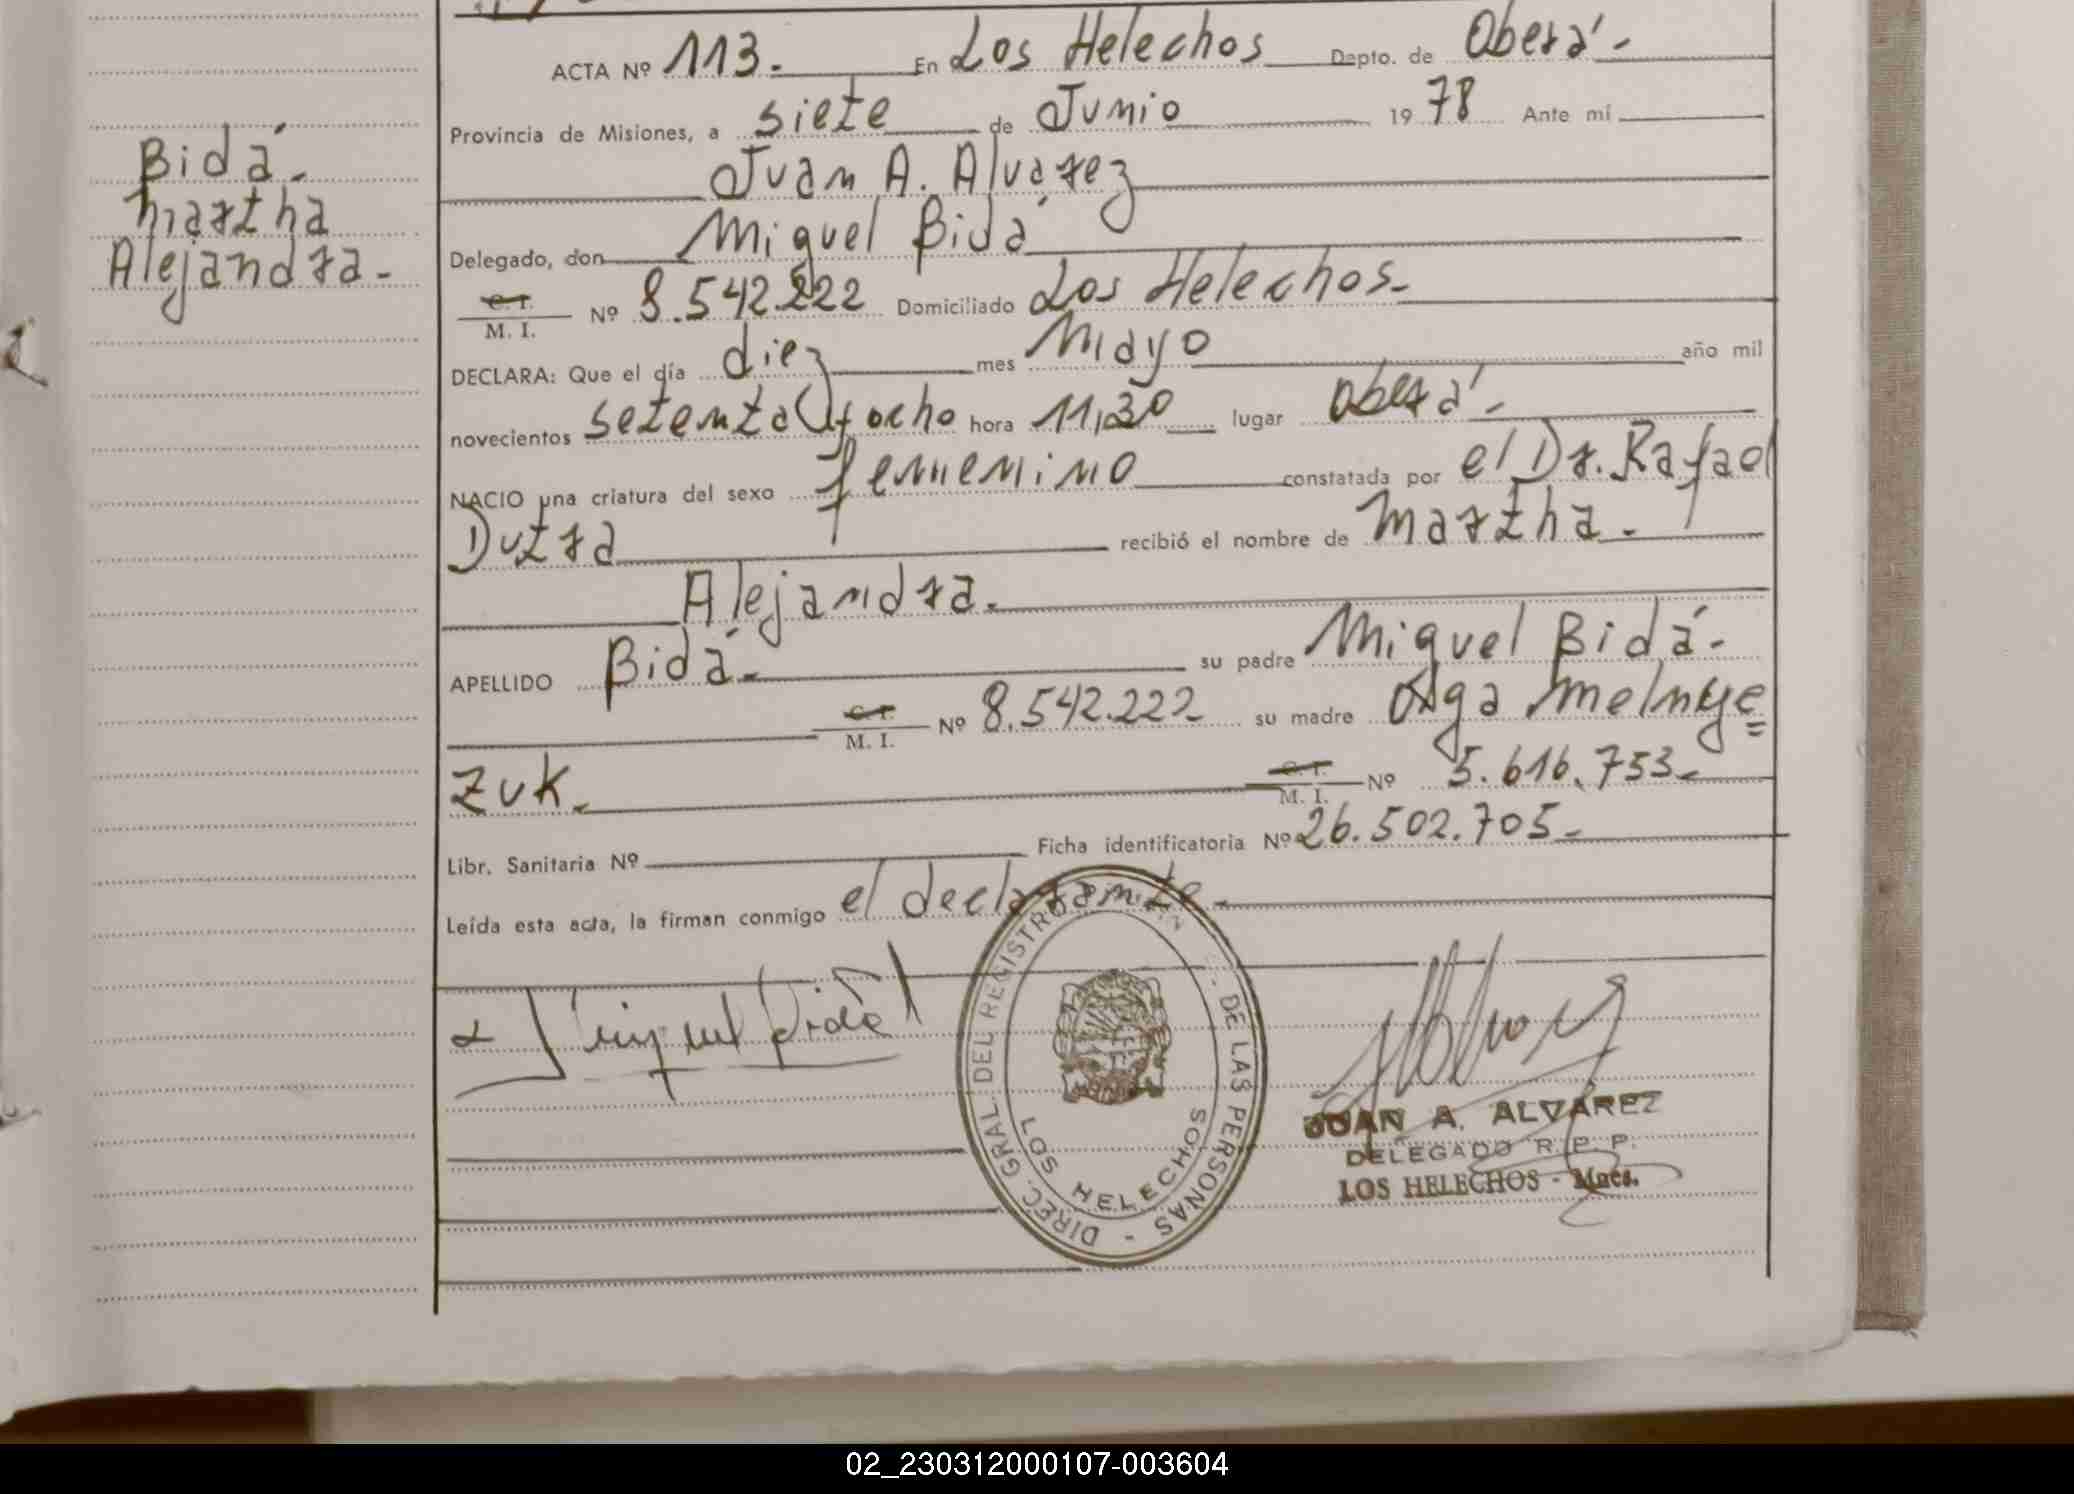 Bidá-
Martha
Alejandra-
ACTA Nº 113.- En Los Helechos Dapto. de Oberá-
Provincia de Misiones, a siete de Junio 1978 Ante mi
Juan A. Alvarez
Delegado, don Miguel Bidá
C. I.
M. I. Nº 8.542.222 Domiciliado Los Helechos-
DECLARA: Que el día diez mes Mayo año mil
novecientos setenta y ocho hora 11,30 lugar Oberá-
NACIO una criatura del sexo femenino constatada por el Dr. Rafael
Dutra recibió el nombre de Martha-
Alejandra-
APELLIDO Bidá- su padre Miguel Bidá-
C. I.
M. I. Nº 8.542.222 su madre Olga Melnye=
zuk-
C. I.
M. I. Nº 5.616.753-
Libr. Sanitaria Nº Ficha identificatoria Nº 26.502.705-
Leída esta acta, la firman conmigo el declarante-
Miguel Bidá
DIREC. GRAL. DEL REGISTRO DE LAS PERSONAS -
LOS HELECHOS
JUAN A. ALVAREZ
DELEGADO R. P. P.
LOS HELECHOS - Mnes.
02_230312000107-003604